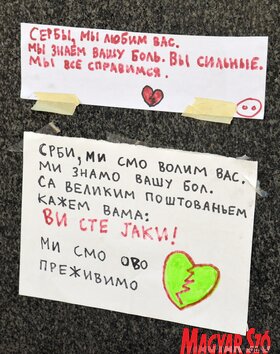 СЕРБЫ, МЫ ЛЮБИМ ВАС.
МЫ ЗНАЕМ ВАШУ БОЛЬ. ВЫ СИЛЬНЫЕ.
МЫ ВСЕ СПРАВИМСЯ.
СРБИ, МИ СМО ВОЛИМ ВАС.
МИ ЗНАМО ВАШУ БОЛ.
СА ВЕЛИКИМ ПОШТОВАЊЕМ
КАЖЕМ ВАМА:
ВИ СТЕ ЈАКИ!
МИ СМО ОВО
ПРЕЖИВИМО
MAGYAR SZÓ